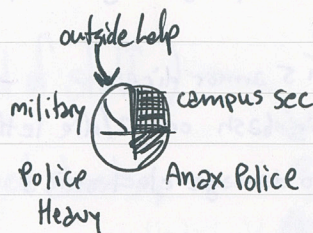 outside help
military
campus sec
Police
Heavy
Anax Police